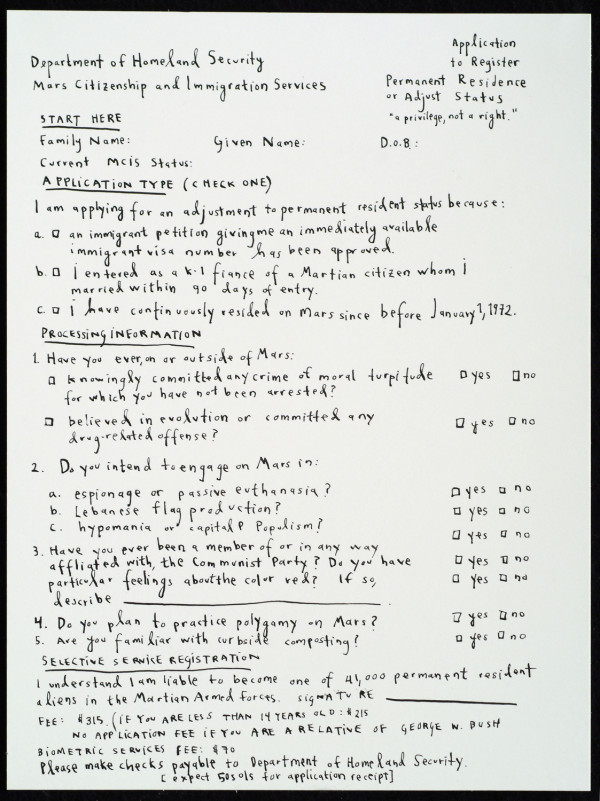 Department of Homeland Security
Mars Citizenship and Immigration Services
Application
to Register
Permanent Residence
or Adjust Status
"a privilege, not a right."
START HERE
Family Name: Given Name: D.o.B.:
Current MCIS Status:
APPLICATION TYPE (CHECK ONE)
I am applying for an adjustment to permanent resident status because:
a. □ an immigrant petition giving me an immediately available
immigrant visa number has been approved.
b. □ I entered as a K-1 fiance of a Martian citizen whom i
married within 90 days of entry.
c. □ i have continuously resided on Mars since before January 1, 1972.
PROCESSING INFORMATION
1. Have you ever, on or outside of Mars:
□ knowingly committed any crime of moral turpitude □ yes □ no
for which you have not been arrested?
□ believed in evolution or committed any □ yes □ no
drug-related offense?
2. Do you intend to engage on Mars in:
a. espionage or passive euthanasia? □ yes □ no
b. Lebanese flag production? □ yes □ no
c. hypomania or capital P Populism? □ yes □ no
3. Have you ever been a member of or in any way
affliated with, the Communist Party? Do you have □ yes □ no
particular feelings about the color red? If so, □ yes □ no
describe
4. Do you plan to practice polygamy on Mars? □ yes □ no
5. Are you familiar with curbside composting? □ yes □ no
SELECTIVE SERVICE REGISTRATION
I understand I am liable to become one of 41,000 permanent resident
aliens in the Martian Armed forces. SIGNATURE
FEE: $315. (IF YOU ARE LESS THAN 14 YEARS OLD: $215
NO APPLICATION FEE IF YOU ARE A RELATIVE OF GEORGE W. BUSH
BIOMETRIC SERVICES FEE: $70
Please make checks payable to Department of Homeland Security.
[expect 50 sols for application receipt]